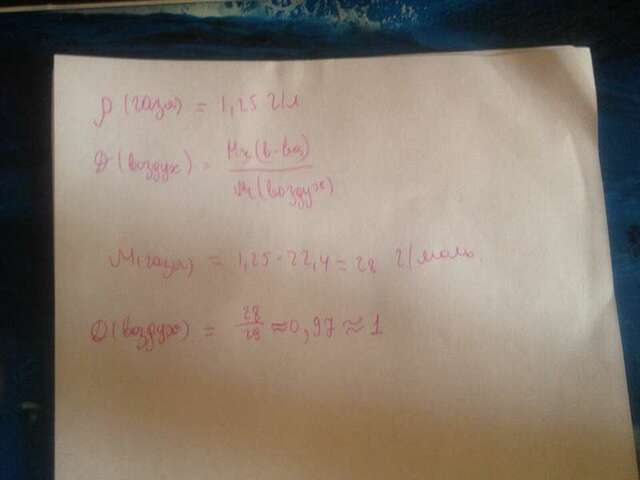 ρ (газа) = 1,25 г/л
D (воздух) = Mr (в-ва) / Mr (воздух)
M (газа) = 1,25 · 22,4 = 28 г/моль.
D (воздух) = 28/29 ≈ 0,97 ≈ 1